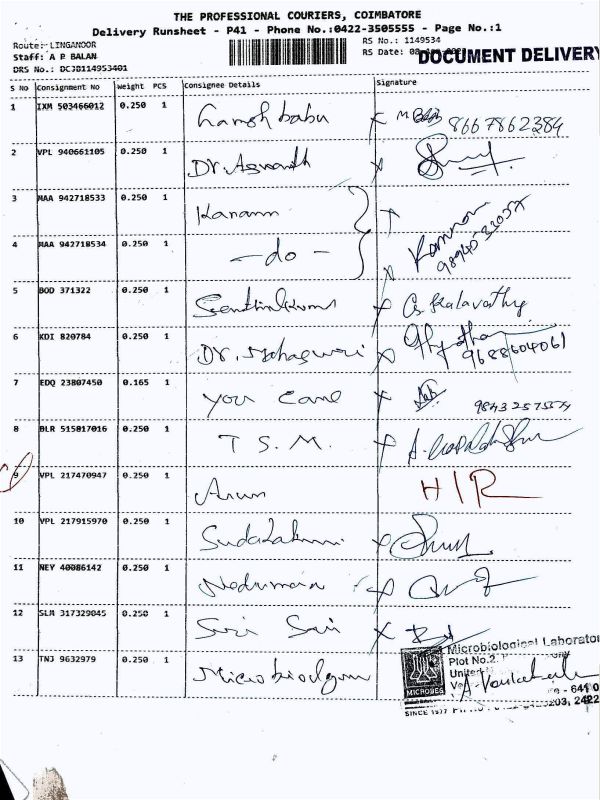 THE PROFESSIONAL COURIERS, COIMBATORE
Delivery Runsheet - P41 - Phone No.:0422-3505555 - Page No.:1
Route: LINGANOOR
Staff: A P BALAN
DRS No.: DCJB114953401
RS No.: 1149534
RS Date: 08-
DOCUMENT DELIVERY
S No Consignment No Weight PCS Consignee Details Signature
1 IXM 503466012 0.250 1 8667862384
2 VPL 940661105 0.250 1 Dr. Aswanth
3 MAA 942718533 0.250 1 Kanann
4 MAA 942718534 0.250 1 - do -
5 BOD 371322 0.250 1 Senthilkumar G. Kalavathy
6 KDI 820784 0.250 1 Dr. Maheswari 9688604061
7 EDQ 23807450 0.165 1 You Care
8 BLR 515817016 0.250 1 T S. M.
9 VPL 217470947 0.250 1 Arun H/R
10 VPL 217915970 0.250 1
11 NEY 40086142 0.250 1
12 SLM 317329045 0.250 1 Sri Sai
13 TNJ 9632979 0.250 1
Microbiological Laborator
Plot No.2
MICROBES
- 641 0
SINCE 1977